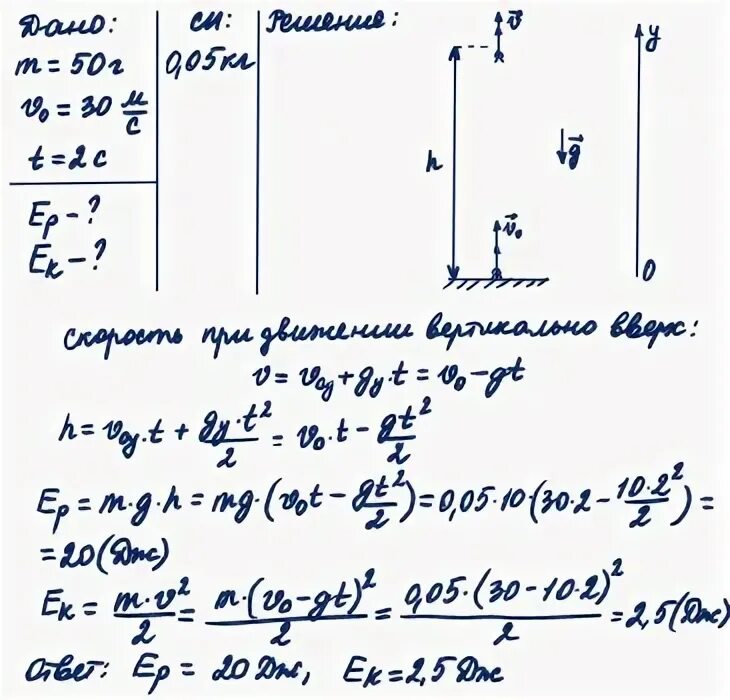 Дано:
m = 50 г
v₀ = 30 м/с
t = 2 с
Eр - ?
Eк - ?
СИ:
0,05 кг
Решение:
v⃗
y
h
g⃗
v⃗₀
0
скорость при движении вертикально вверх:
v = v₀y + gy · t = v₀ - gt
h = v₀y · t + gy · t²/2 = v₀ · t - gt²/2
Eр = m · g · h = mg · (v₀t - gt²/2) = 0,05 · 10 · (30 · 2 - 10 · 2²/2) =
= 20 (Дж)
Eк = m · v²/2 = m · (v₀ - gt)²/2 = 0,05 · (30 - 10 · 2)²/2 = 2,5 (Дж)
Ответ: Eр = 20 Дж, Eк = 2,5 Дж